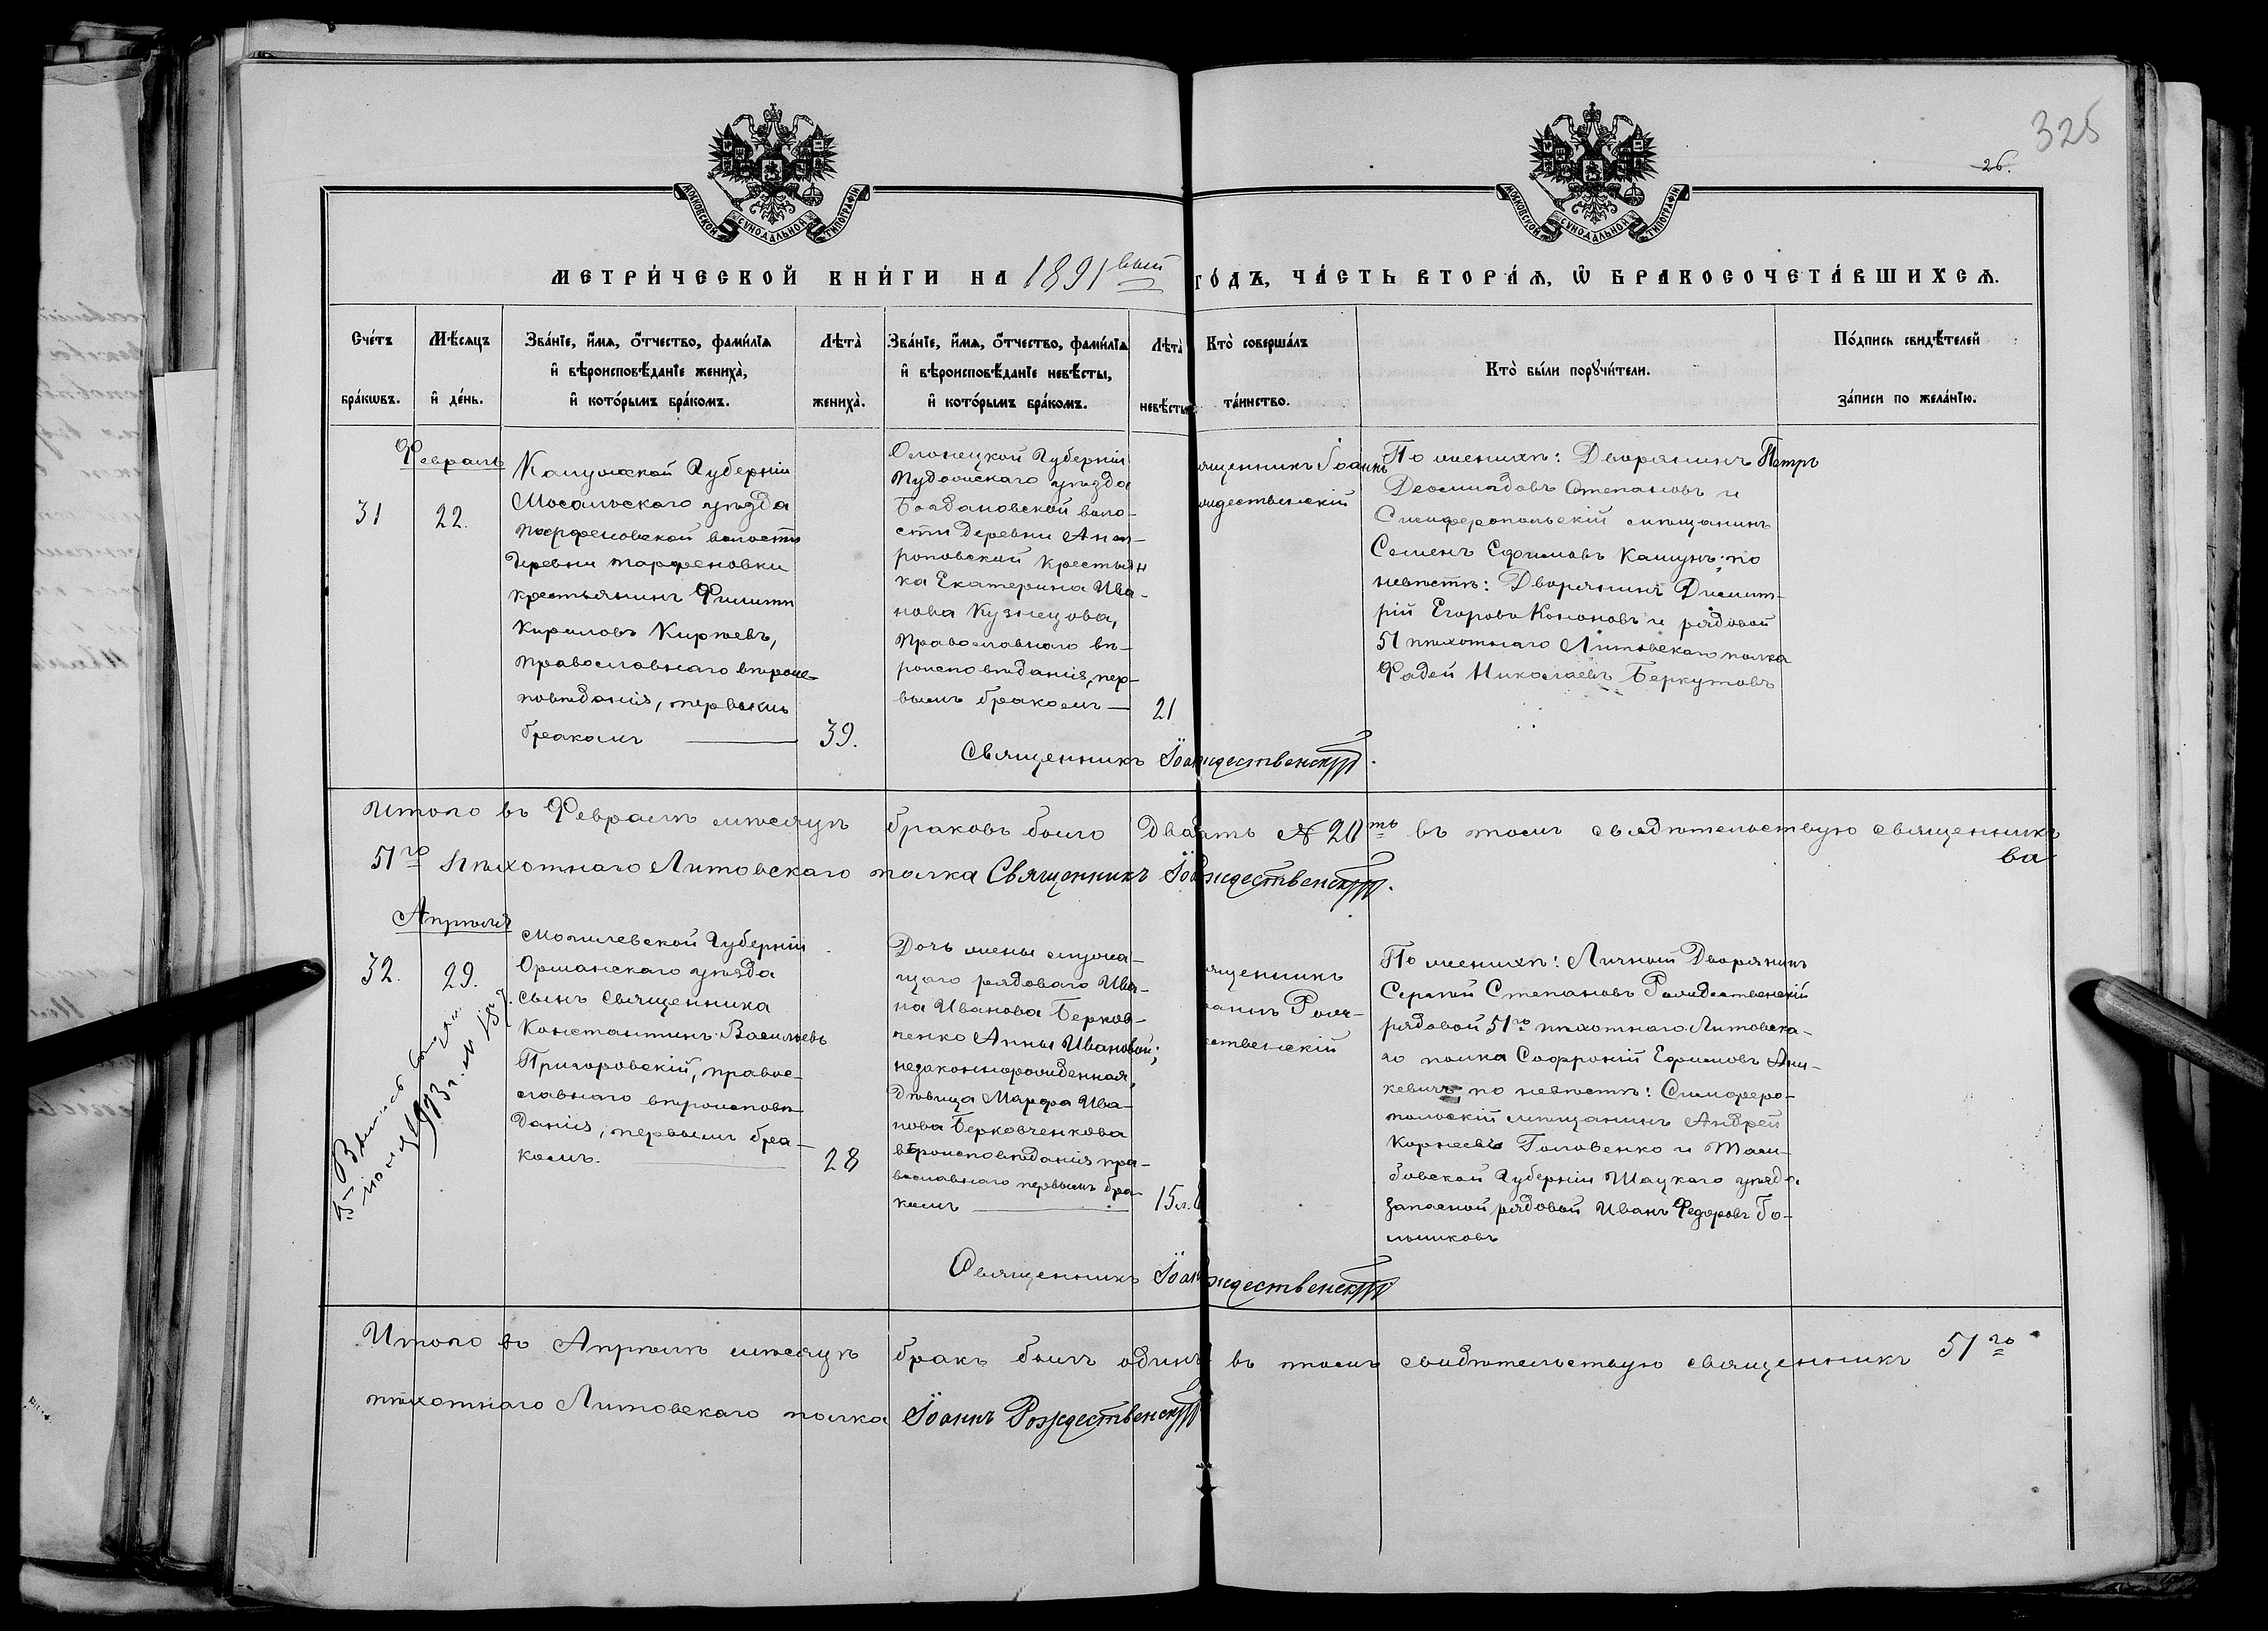 325
26.
МОСКОВСКОЙ СѴНОДАЛЬНОЙ ТИПОГРАФІИ
МОСКОВСКОЙ СѴНОДАЛЬНОЙ ТИПОГРАФІИ
МЕТРИ́ЧЕСКОЙ КНИ́ГИ НА 1891вый ГО́ДЪ, ЧА́СТЬ ВТОРА́Я, Ѿ БРАКОСОЧЕТА́ВШИХСЯ.
Сче́тъ
бра́кѡвъ.
Мѣ́сяцъ
и҆ де́нь.
Зва́нїе, и҆́мя, ѻ҆́тчество, фами́лїя
и҆ вѣроисповѣ́данїе жениха̀,
и҆ кото́рымъ бра́комъ.
Лѣта̀
жениха̀.
Зва́нїе, и҆́мя, ѻ҆́тчество, фами́лїя
и҆ вѣроисповѣ́данїе невѣ́сты,
и҆ кото́рымъ бра́комъ.
Лѣта̀
невѣ́сты
Кто̀ соверша́лъ
та́инство.
Кто̀ бы́ли порꙋчи́тели.
По́дпись свидѣ́телей
за́писи по жела́нїю.
Февраль
31
22.
Калужской Губерніи
Мосальскаго уѣзда
Парфеновской волости
деревни Парфеновки
крестьянинъ Филиппъ
Кириловъ Киреевъ,
православнаго вѣроис-
повѣданія, первымъ
бракомъ
39.
Олонецкой Губерніи
Пудожскаго уѣзда
Богдановской воло-
сти деревни Анд-
роповской крестьян
ка Екатерина Ива-
нова Кузнецова,
православнаго вѣ-
роисповѣданія, пер-
вымъ бракомъ
21
ященникъ Іоаннъ
ождественскій
По женихѣ: Дворянинъ Петръ
Деомидовъ Степановъ и
Симферопольскій мѣщанинъ
Семенъ Ефимовъ Кашунъ; по
невѣстѣ: Дворянинъ Димит-
рій Егоровъ Кононовъ и рядовой
51 пѣхотнаго Литовскаго полка
Фадей Николаевъ Беркутовъ
Священникъ Іоаннъ Рождественскій.
Итого въ Февралѣ мѣсяцѣ браковъ было двадцать № 20ть въ томъ свидѣтельствую священникъ
51го Пѣхотнаго Литовскаго полка Священникъ Іоаннъ Рождественскій.
Апрѣля
32.
29.
Могилевской Губерніи
Оршанскаго уѣзда
сынъ священника
Константинъ Васильевъ
Пригоровскій, правос-
славнаго вѣроисповѣ-
данія, первымъ бра-
комъ.
28
Дочь жены служа-
щаго рядоваго Ива-
на Иванова Берков-
ченко Анны Ивановой;
незаконнорожденная,
дѣвица Марфа Ива-
нова Берковченкова
вѣроисповѣданія пра-
вославнаго первымъ бра-
комъ
15 л.
ященникъ
оаннъ Рож-
ественскій
По женихѣ: Личный Дворянинъ
Сергѣй Степановъ Рождественскій
рядовой 51го пѣхотнаго Литовска-
го полка Софроній Ефимовъ Яни-
кевичъ по невѣстѣ: Симферо-
польскій мѣщанинъ Андрей
Корнеевъ Головенко и Там-
бовской Губерніи Шацкаго уѣзда
запасной рядовой Иванъ Федоровъ Го-
льниковъ
Священникъ Іоаннъ Рождественскій
Итого въ Апрѣлѣ мѣсяцѣ бракъ былъ одинъ въ томъ свидѣтельствую священникъ 51го
пѣхотнаго Литовскаго полка Іоаннъ Рождественскій